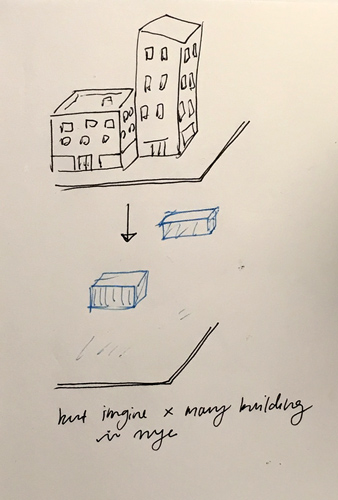 but imgine x many building
in nyc